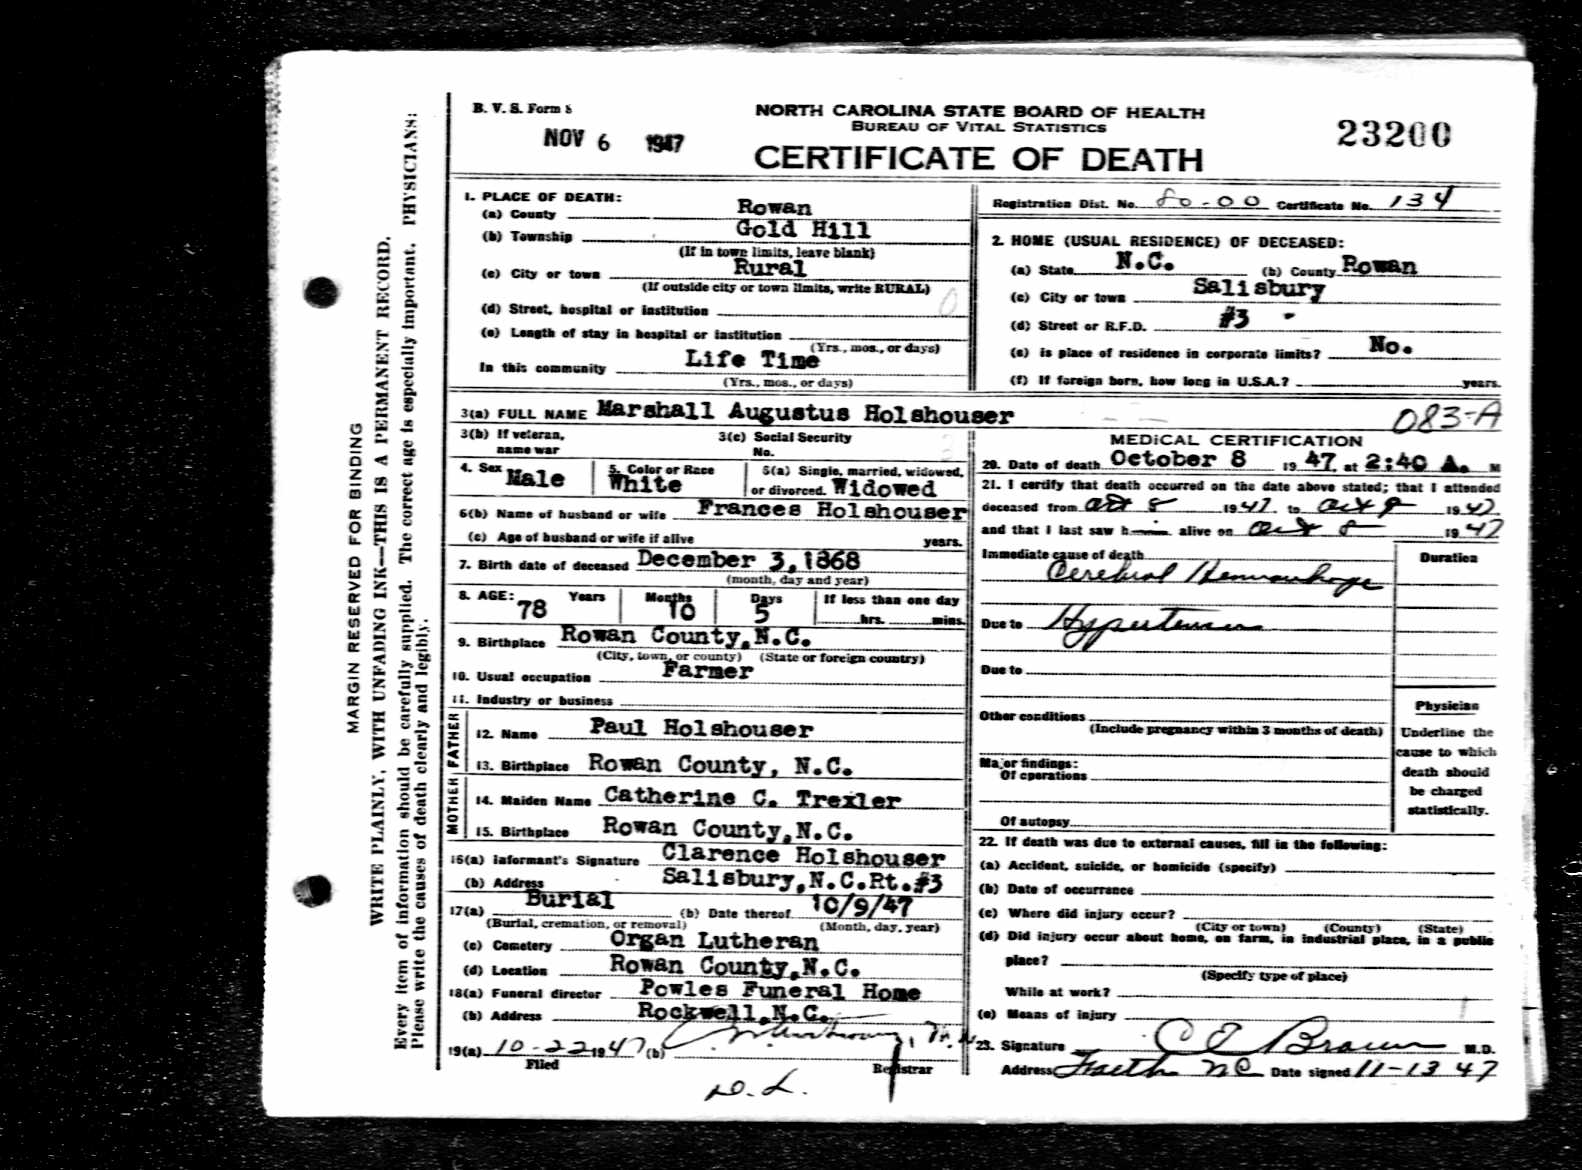 B. V. S. Form 8
NOV 6 1947
NORTH CAROLINA STATE BOARD OF HEALTH
BUREAU OF VITAL STATISTICS
CERTIFICATE OF DEATH
23200
MARGIN RESERVED FOR BINDING
WRITE PLAINLY, WITH UNFADING INK—THIS IS A PERMANENT RECORD.
Every item of information should be carefully supplied. The correct age is especially important. PHYSICIANS:
Please write the causes of death clearly and legibly.
1. PLACE OF DEATH:
(a) County Rowan
(b) Township Gold Hill
(If in town limits, leave blank)
(c) City or town Rural
(If outside city or town limits, write RURAL)
(d) Street, hospital or institution
(e) Length of stay in hospital or institution
(Yrs., mos., or days)
In this community Life Time
(Yrs., mos., or days)
Registration Dist. No. 80-00 Certificate No. 134
2. HOME (USUAL RESIDENCE) OF DECEASED:
(a) State N.C. (b) County Rowan
(c) City or town Salisbury
(d) Street or R.F.D. #3 -
(e) Is place of residence in corporate limits? No.
(f) If foreign born, how long in U.S.A.? years.
3(a) FULL NAME Marshall Augustus Holshouser
083-A
3(b) If veteran, name war
3(c) Social Security No.
4. Sex Male
5. Color or Race White
6(a) Single, married, widowed, or divorced. Widowed
6(b) Name of husband or wife Frances Holshouser
(c) Age of husband or wife if alive years.
7. Birth date of deceased December 3,1868
(month, day and year)
8. AGE: Years 78 Months 10 Days 5 If less than one day hrs. mins.
9. Birthplace Rowan County,N.C.
(City, town, or county) (State or foreign country)
10. Usual occupation Farmer
11. Industry or business
FATHER
12. Name Paul Holshouser
13. Birthplace Rowan County, N.C.
MOTHER
14. Maiden Name Catherine C. Trexler
15. Birthplace Rowan County,N.C.
16(a) Informant's Signature Clarence Holshouser
(b) Address Salisbury,N.C.Rt.#3
17(a) Burial (b) Date thereof 10/9/47
(Burial, cremation, or removal) (Month, day, year)
(c) Cemetery Organ Lutheran
(d) Location Rowan County,N.C.
18(a) Funeral director Powles Funeral Home
(b) Address Rockwell,N.C.
19(a) 10-22 1947 (b)
Filed Registrar
D. L.
MEDICAL CERTIFICATION
20. Date of death October 8 1947 at 2:40 A. M
21. I certify that death occurred on the date above stated; that I attended
deceased from Oct 8 1947 to Oct 8 1947.
and that I last saw h im alive on Oct 8 1947
Immediate cause of death Duration
Cerebral Hemorrhage
Due to Hypertension
Due to
Other conditions
(Include pregnancy within 3 months of death)
Major findings:
Of operations
Of autopsy
Physician
Underline the
cause to which
death should
be charged
statistically.
22. If death was due to external causes, fill in the following:
(a) Accident, suicide, or homicide (specify)
(b) Date of occurrence
(c) Where did injury occur?
(City or town) (County) (State)
(d) Did injury occur about home, on farm, in industrial place, in a public
place?
(Specify type of place)
While at work?
(e) Means of injury
23. Signature C E Brown M.D.
Address Faith NC Date signed 11-13 47